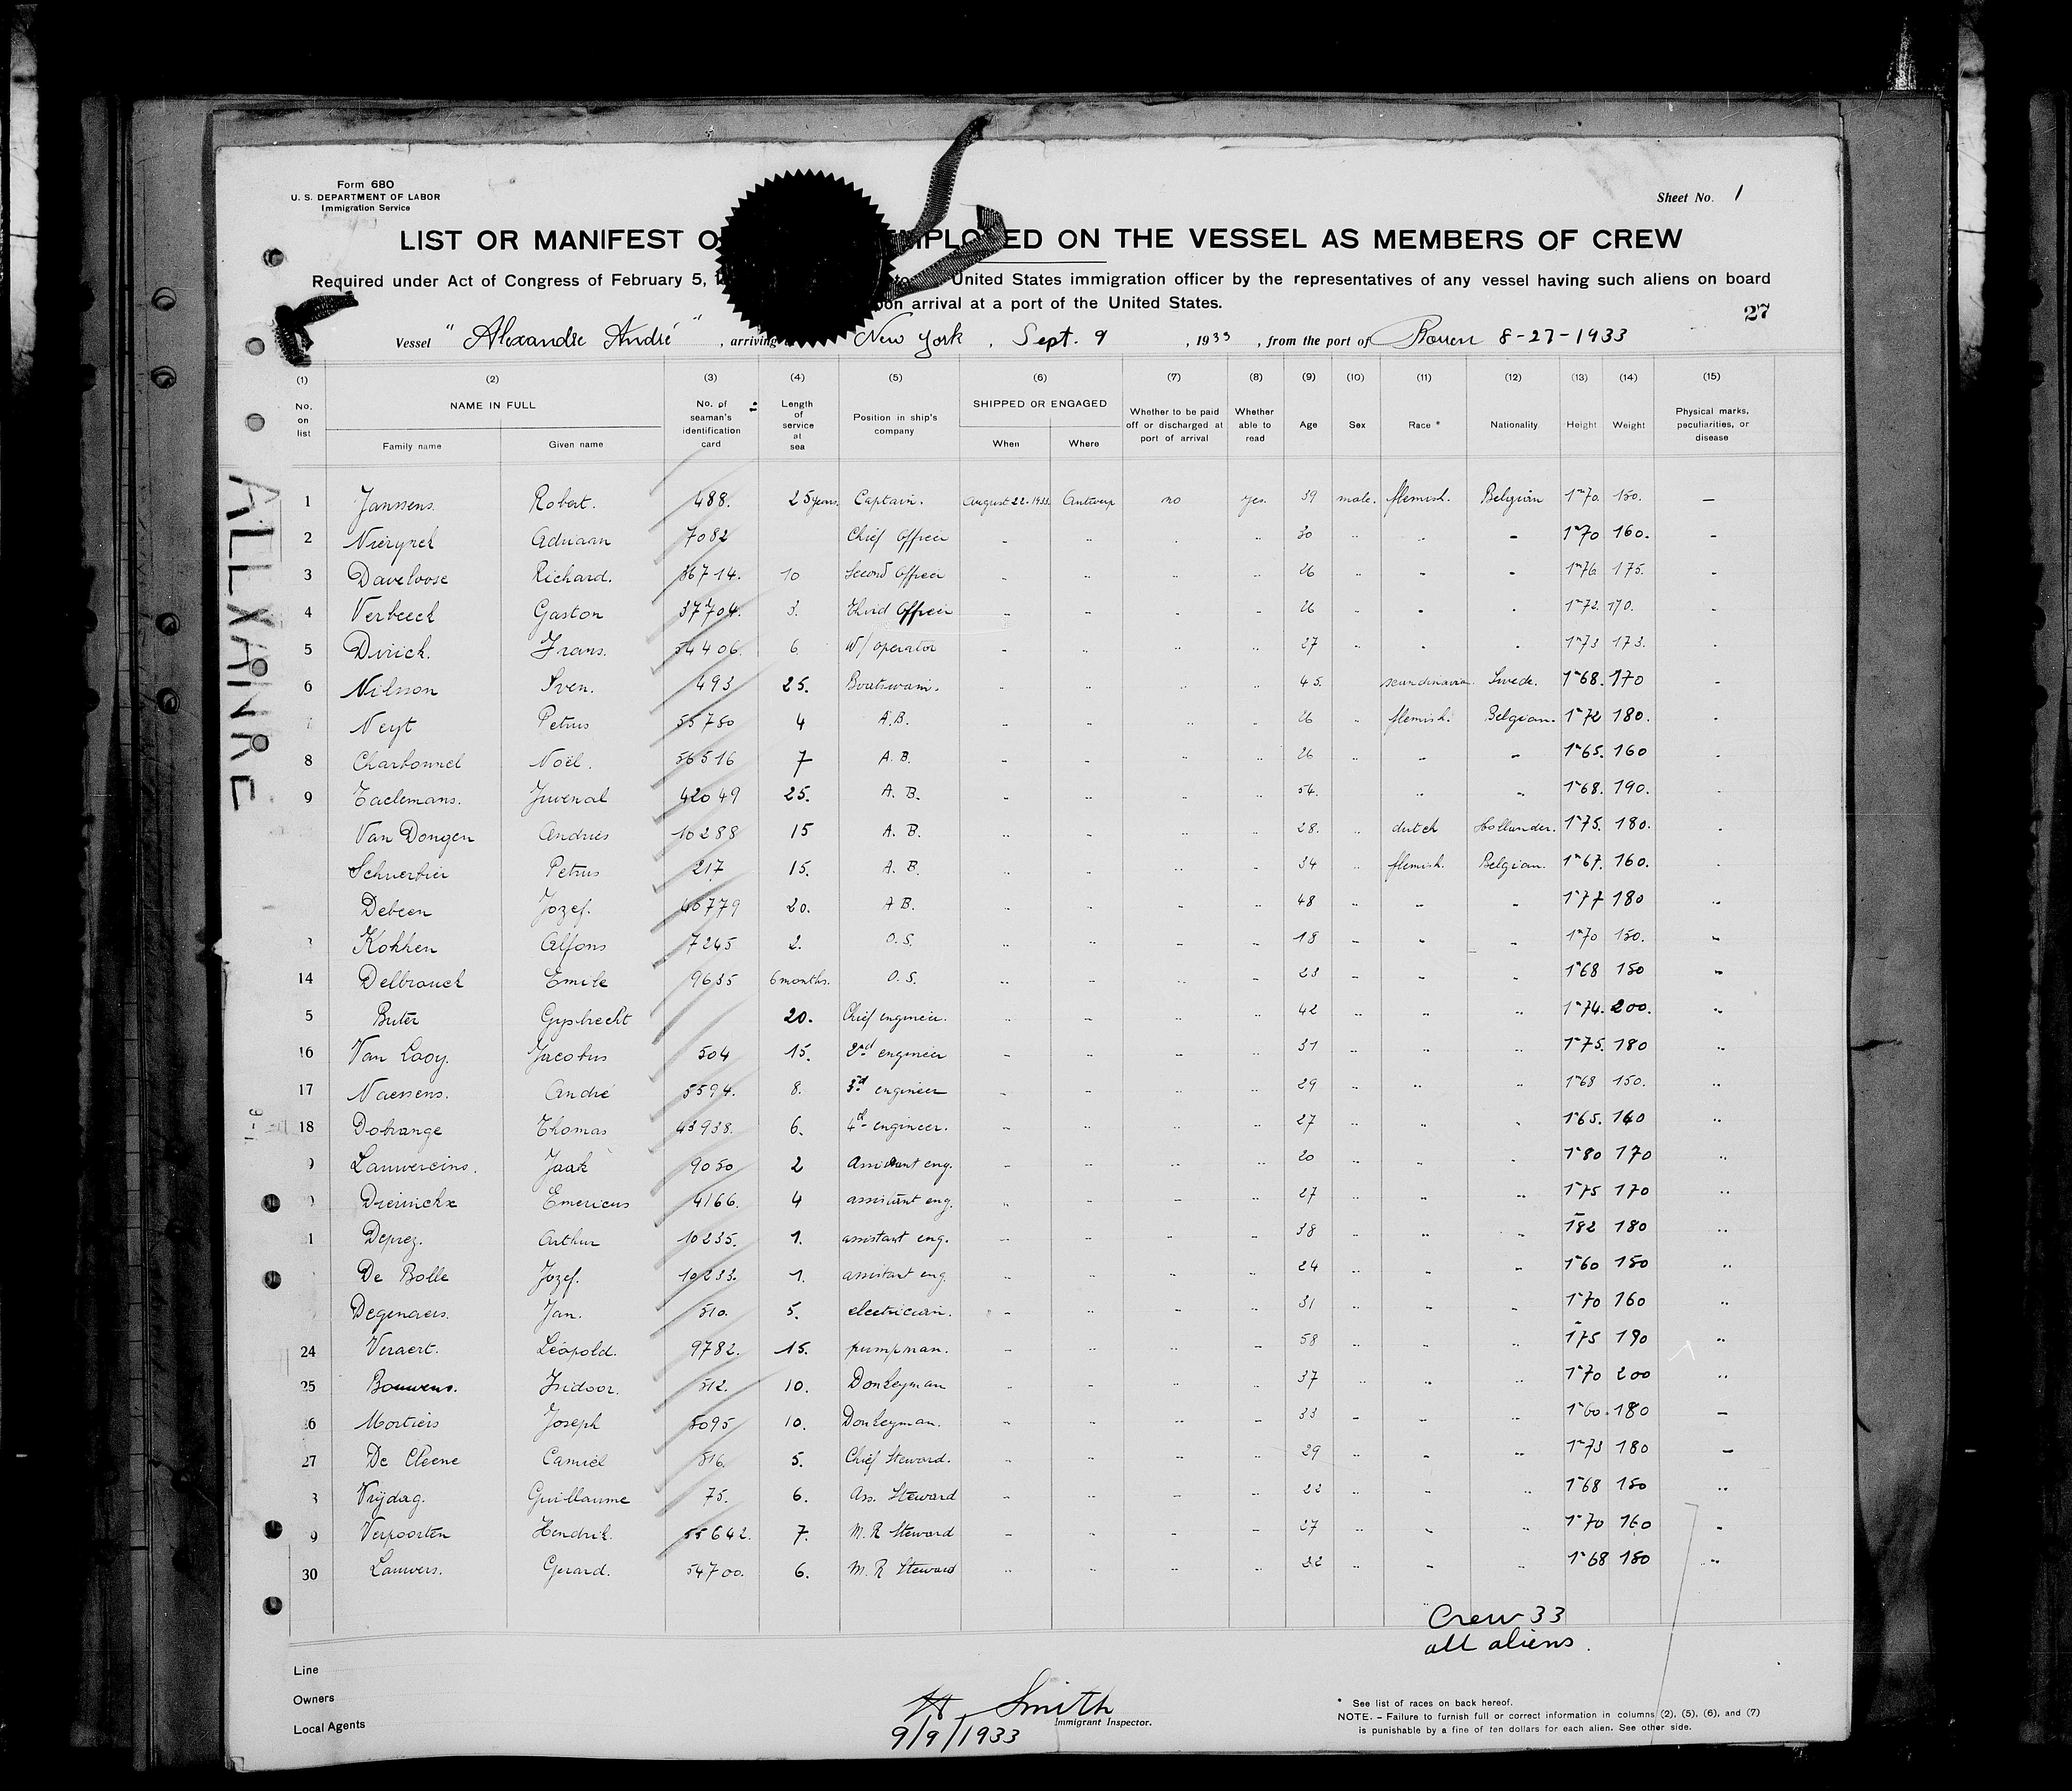 Form 680
U. S. DEPARTMENT OF LABOR
Immigration Service
Sheet No. 1
LIST OR MANIFEST O MPLOYED ON THE VESSEL AS MEMBERS OF CREW
Required under Act of Congress of February 5, United States immigration officer by the representatives of any vessel having such aliens on board
on arrival at a port of the United States.
27
Vessel "Alexandre André", arriving New York, Sept. 9, 1933, from the port of Rouen 8-27-1933
(1) (2) (3) (4) (5) (6) (7) (8) (9) (10) (11) (12) (13) (14) (15)
No. on list NAME IN FULL Family name Given name No. of seaman's identification card Length of service at sea Position in ship's company SHIPPED OR ENGAGED When Where Whether to be paid off or discharged at port of arrival Whether able to read Age Sex Race * Nationality Height Weight Physical marks, peculiarities, or disease
1 Janssens. Robert. 488. 25 years. Captain. August 22-1933. Antwerp no yes. 39 male. flemish. Belgian 1m70. 150. —
2 Nierynck Adriaan 7082 Chief Officer - .. . .. 30 .. . - 1m70 160. -
3 Daveloose Richard. 36714. 10 Second Officer - .. .. .. 26 .. . - 1m76 175. -
4 Verbeeck Gaston 37704. 3. Third Officer - .. .. .. 26 .. . . 1m72. 170. .
5 Dirick. Frans. 54406. 6 W/operator - .. .. .. 27 .. . . 1m73 173. .
6 Nilsson Sven. 493 25. Boatswain. - .. .. .. 45. scandinavia. Swede. 1m68. 170 -
7 Neyt Petrus 55750 4 A.B. - .. .. .. 26 .. flemish. Belgian. 1m72 180. .
8 Charbonnel Noël. 56516 7 A. B. - .. .. .. 26 .. .. .. 1m65. 160 .
9 Taelemans. Juvenal 42049 25. A. B. .. .. .. .. 54. .. .. .. 1m68. 190. .
Van Dongen Andries 10288 15 A. B. .. .. .. .. 28. .. dutch Hollander. 1m75. 180. .
Petrus 217 15. A. B. .. .. .. .. 34 .. flemish. Belgian. 1m67. 160. .
Debeen Jozef. 40779 20. A B. .. .. - .. 48 .. .. - 1m77 180 ..
Kokken Alfons 7245 2. O. S. .. .. - .. 18 - .. - 1m70 150. -
14 Delbrouck Emile 9635 6 months. O. S. .. .. .. - 23 - - .. 1m68 150 -
5 Buter Gysbrecht 20. Chief engineer. .. .. .. - 42 .. .. .. 1m74. 200. ..
16 Van Looy. Jacobus 504 15. 2nd engineer - .. - .. 31 .. .. .. 1m75. 180 ..
17 Naessens. André 5594. 8. 3rd engineer - .. .. .. 29 .. .. .. 1m68 150. ..
18 Dotrange Thomas 43938. 6. 4th engineer. - .. .. .. 27 .. .. . 1m65. 160 ..
9 Lauwereins. Jaak 9050 2 Assistant eng. - .. .. .. 20 .. .. . 1m80 170 ..
Dierinckx Emericus 4166. 4 assistant eng. .. - - .. 27 .. .. .. 1m75 170 ..
1 Deprez. Arthur 10235. 1. assistant eng. - .. - .. 38 .. .. .. 182 180 ..
De Bolle Jozef. 10233. 1. assistant eng. .. .. .. - 24 .. .. - 1m60 150 ..
Degenaers. Jan. 510. 5. electrician. - .. .. .. 31 .. - .. 1m70 160 ..
24 Veraert. Léopold. 9782. 15. pumpman. - .. .. - 58 .. - .. 175 190 ..
25 Bouwens. Isidoor. 512. 10. Donkeyman .. .. .. .. 37 .. .. .. 1m70 200 ..
26 Mortiers Joseph 5095 10. Donkeyman. - .. - .. 33 - - .. 1m60. 180 -
27 De Cleene Camiel 516. 5. Chief Steward. - .. .. .. 29 .. - .. 1m73 180 -
Vrijdag. Guillaume 75. 6. Ass. Steward .. .. .. .. 22 .. - .. 1m68 150 ..
9 Verpoorten Hendrik. 55642. 7. M. R Steward - .. - - 27 .. .. .. 1m70 160 -
30 Lauwers. Gerard. 54700. 6. M. R Steward .. .. .. .. 22 .. - .. 1m68 150 ..
Crew 33
all aliens.
Line
Owners
Local Agents
Smith
Immigrant Inspector.
9/9/1933
* See list of races on back hereof.
NOTE. – Failure to furnish full or correct information in columns (2), (5), (6), and (7)
is punishable by a fine of ten dollars for each alien. See other side.
ALLXAINRE